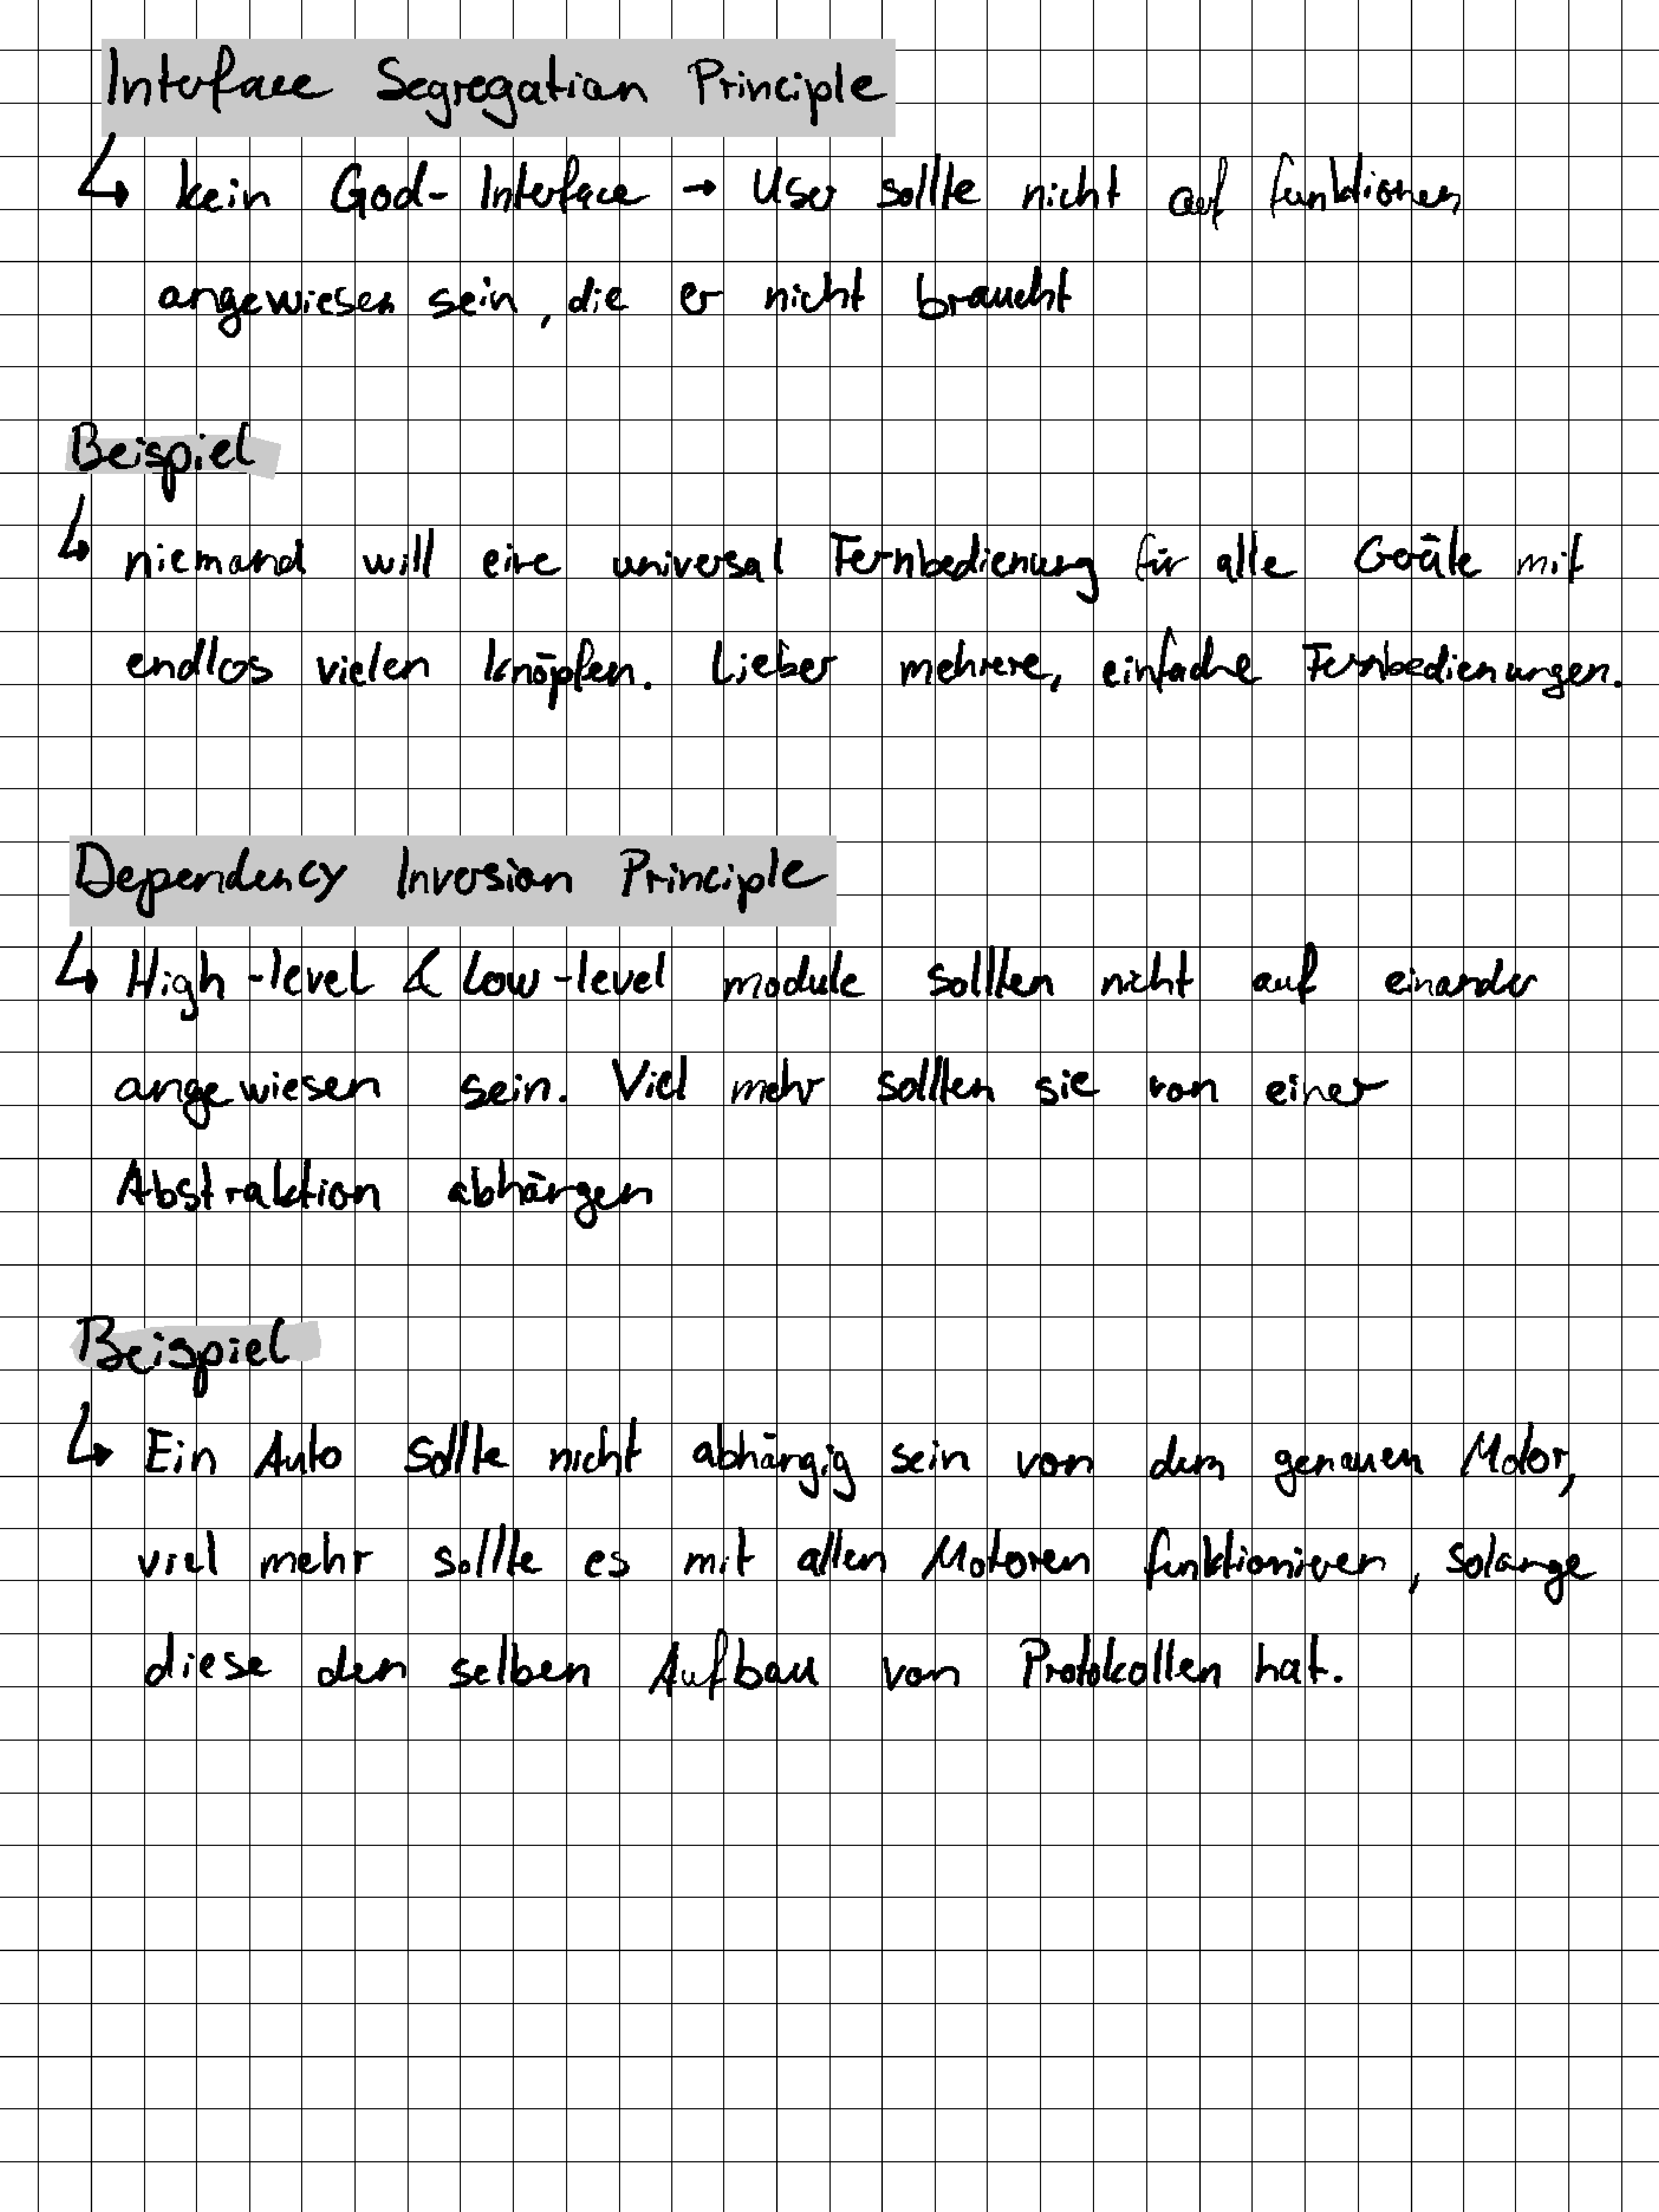 Interface Segregation Principle
↳ kein God-Interface → User sollte nicht auf funktionen
angewiesen sein, die er nicht braucht
Beispiel
↳ niemand will eine universal Fernbedienung für alle Geräte mit
endlos vielen knöpfen. Lieber mehrere, einfache Fernbedienungen.
Dependency Inversion Principle
↳ High-level & Low-level module sollten nicht auf einander
angewiesen sein. Viel mehr sollten sie von einer
Abstraktion abhängen
Beispiel
↳ Ein Auto sollte nicht abhängig sein von dem genauen Motor,
viel mehr sollte es mit allen Motoren funktionieren, solange
diese den selben Aufbau von Protokollen hat.